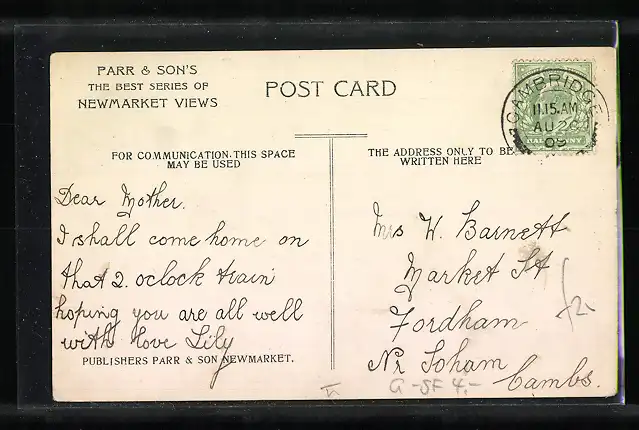 PARR & SON'S
THE BEST SERIES OF
NEWMARKET VIEWS
POST CARD
CAMBRIDGE
11.15.AM
AU 26
09
HALFPENNY
FOR COMMUNICATION, THIS SPACE
MAY BE USED
THE ADDRESS ONLY TO BE
WRITTEN HERE
Dear Mother.
I shall come home on
that 2. oclock train
hoping you are all well
with love Lily
PUBLISHERS PARR & SON NEWMARKET.
Mrs W. Barnett
Market St
Fordham
Nr Soham
Cambs.